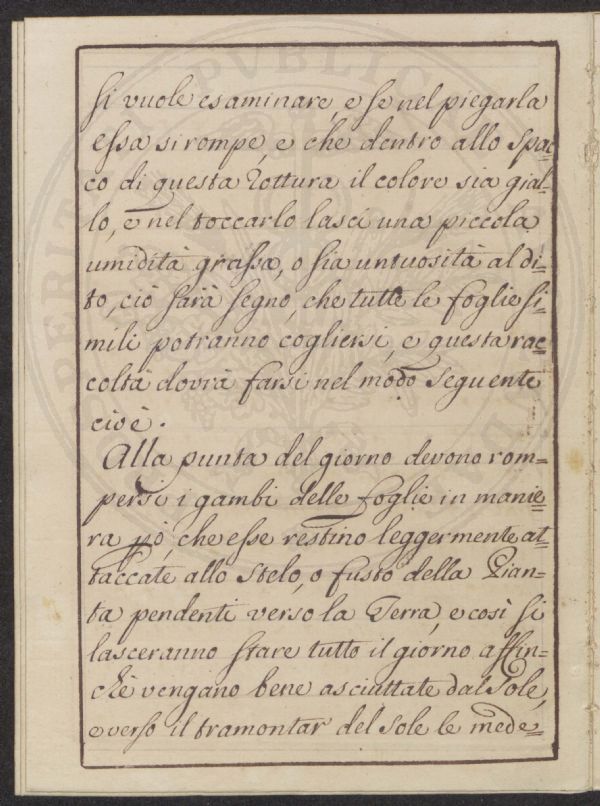 si vuole esaminare, e se nel piegarla
essa si rompe, e che dentro allo spac=
co di questa rottura il colore sia gial=
lo, e nel toccarlo lasci una piccola
umidità grassa, o sia untuosità al di=
to, ciò sarà segno, che tutte le foglie si=
mili potranno cogliersi, e questa rac=
coltà dovrà farsi nel modo seguente
cioè.
Alla punta del giorno devono rom=
persi i gambi delle foglie in manie=
ra pò, che esse restino leggermente at=
taccate allo stelo, o fusto della Pian=
ta pendenti verso la Terra, e così si
lasceranno stare tutto il giorno affin=
chè vengano bene asciuttate dal Sole,
e verso il tramontar del sole le mede=